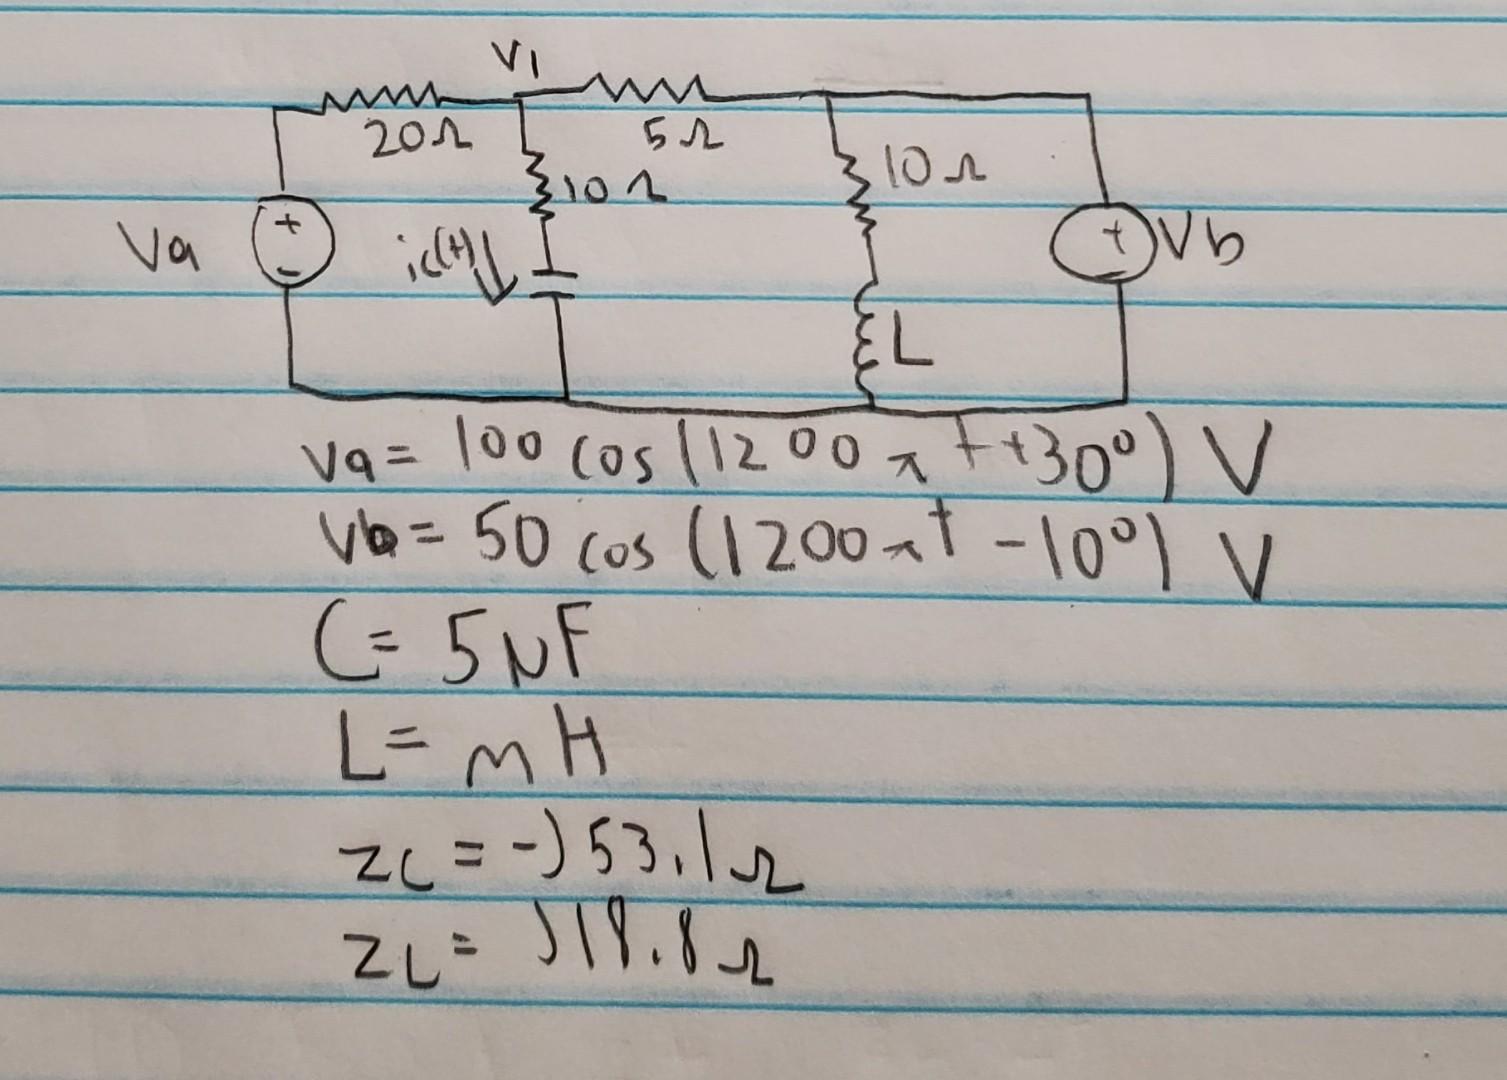 V1
20Ω
5Ω
10Ω
10Ω
Va
+
-
ic(t)
L
+
-
Vb
va = 100 cos(1200πt+30°) V
vb = 50 cos(1200πt-10°) V
C = 5μF
L = mH
zc = -j53.1Ω
zL = j18.8Ω